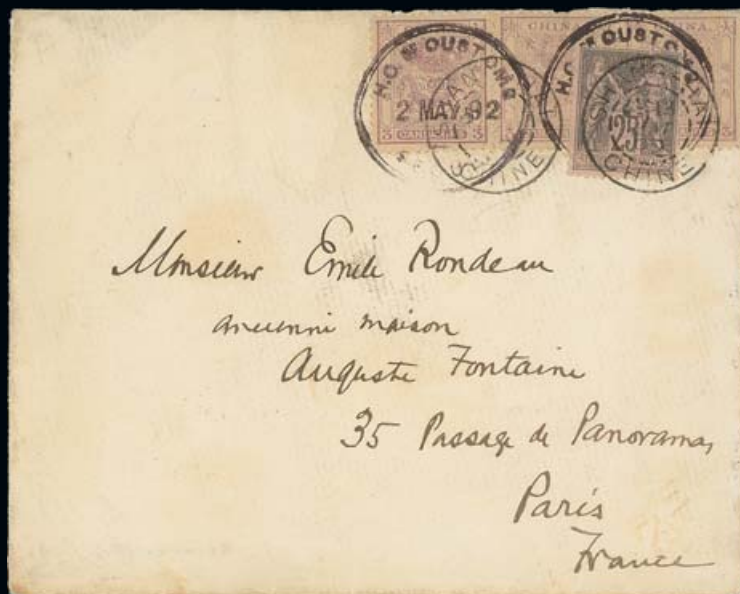 CHINA
H.C. M CUSTOMS
2 MAY 92
3 3 3
H.C. M CUSTOMS
CHINE
25
CHINE
Monsieur Emile Rondeau
ancienne maison
Auguste Fontaine
35 Passage de Panoramas
Paris
France